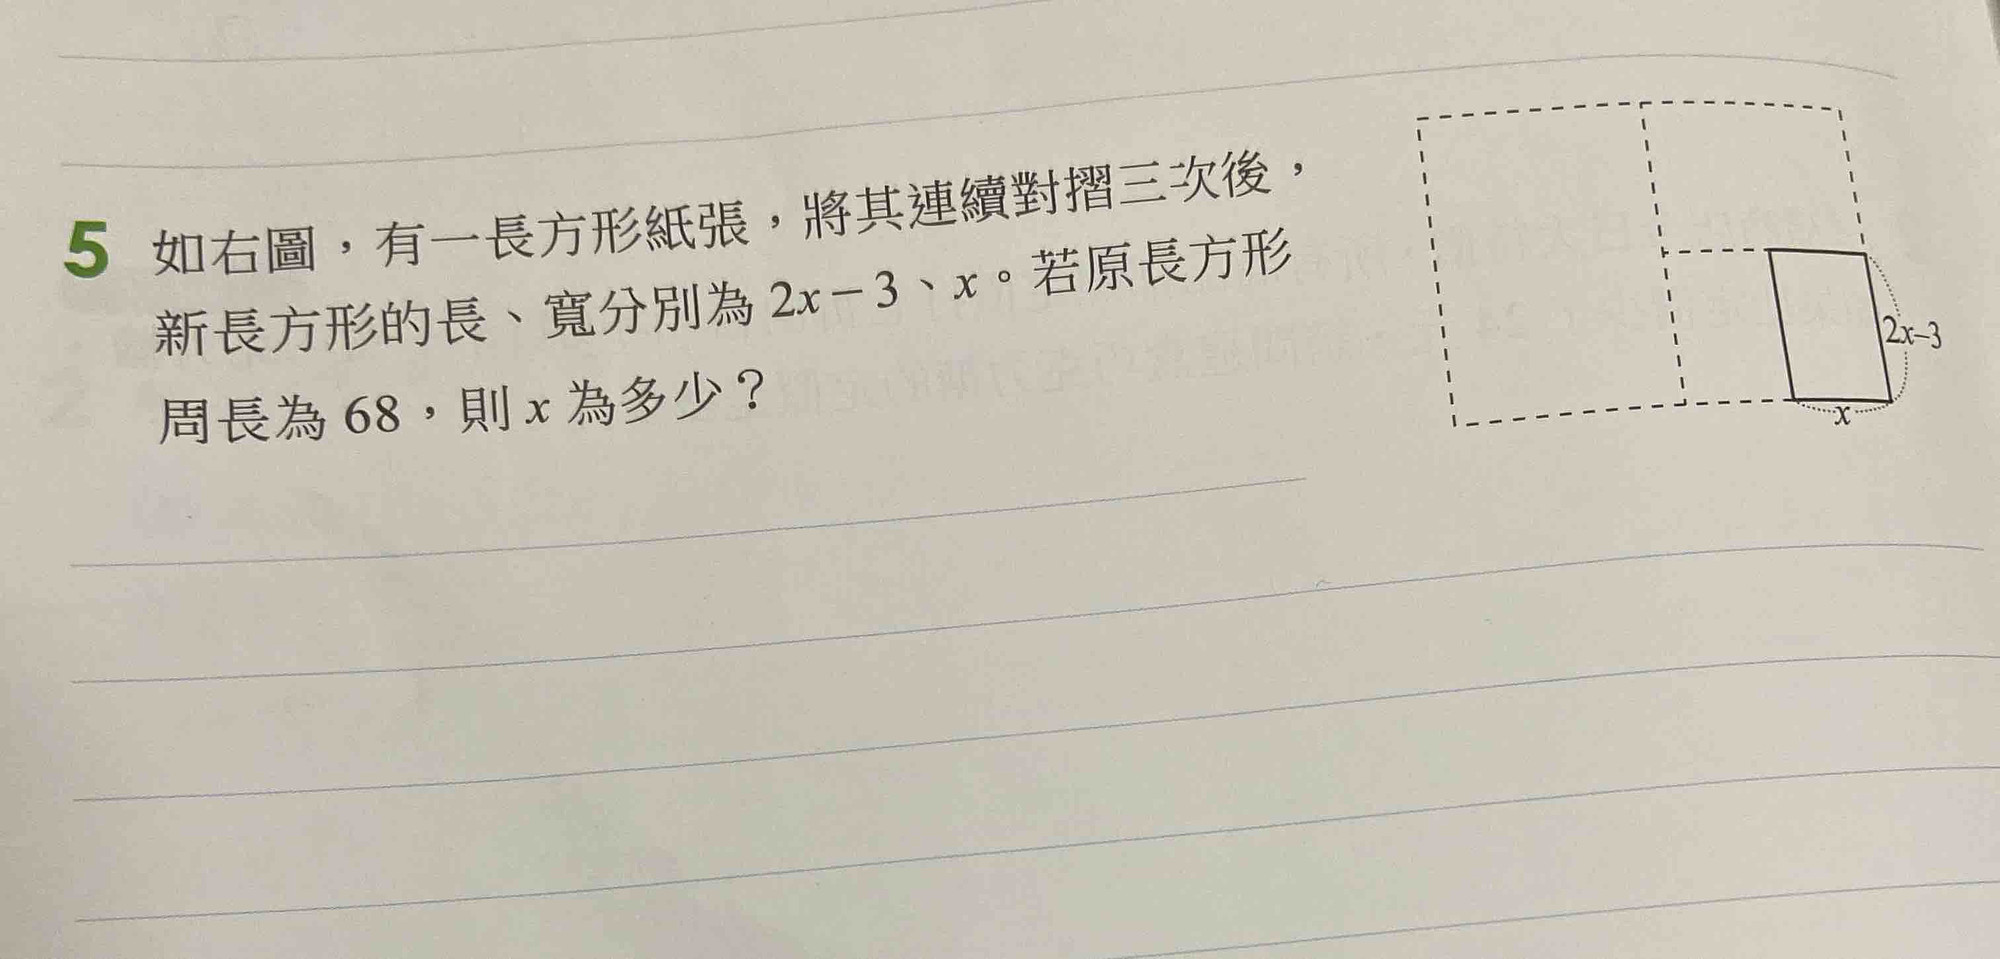 5 如右圖，有一長方形紙張，將其連續對摺三次後，
新長方形的長、寬分別為 2x－3、x。若原長方形
周長為 68，則 x 為多少？
2x–3
x